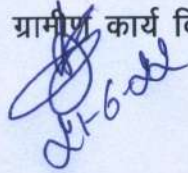 ग्रामीण कार्य वि
21-6-22